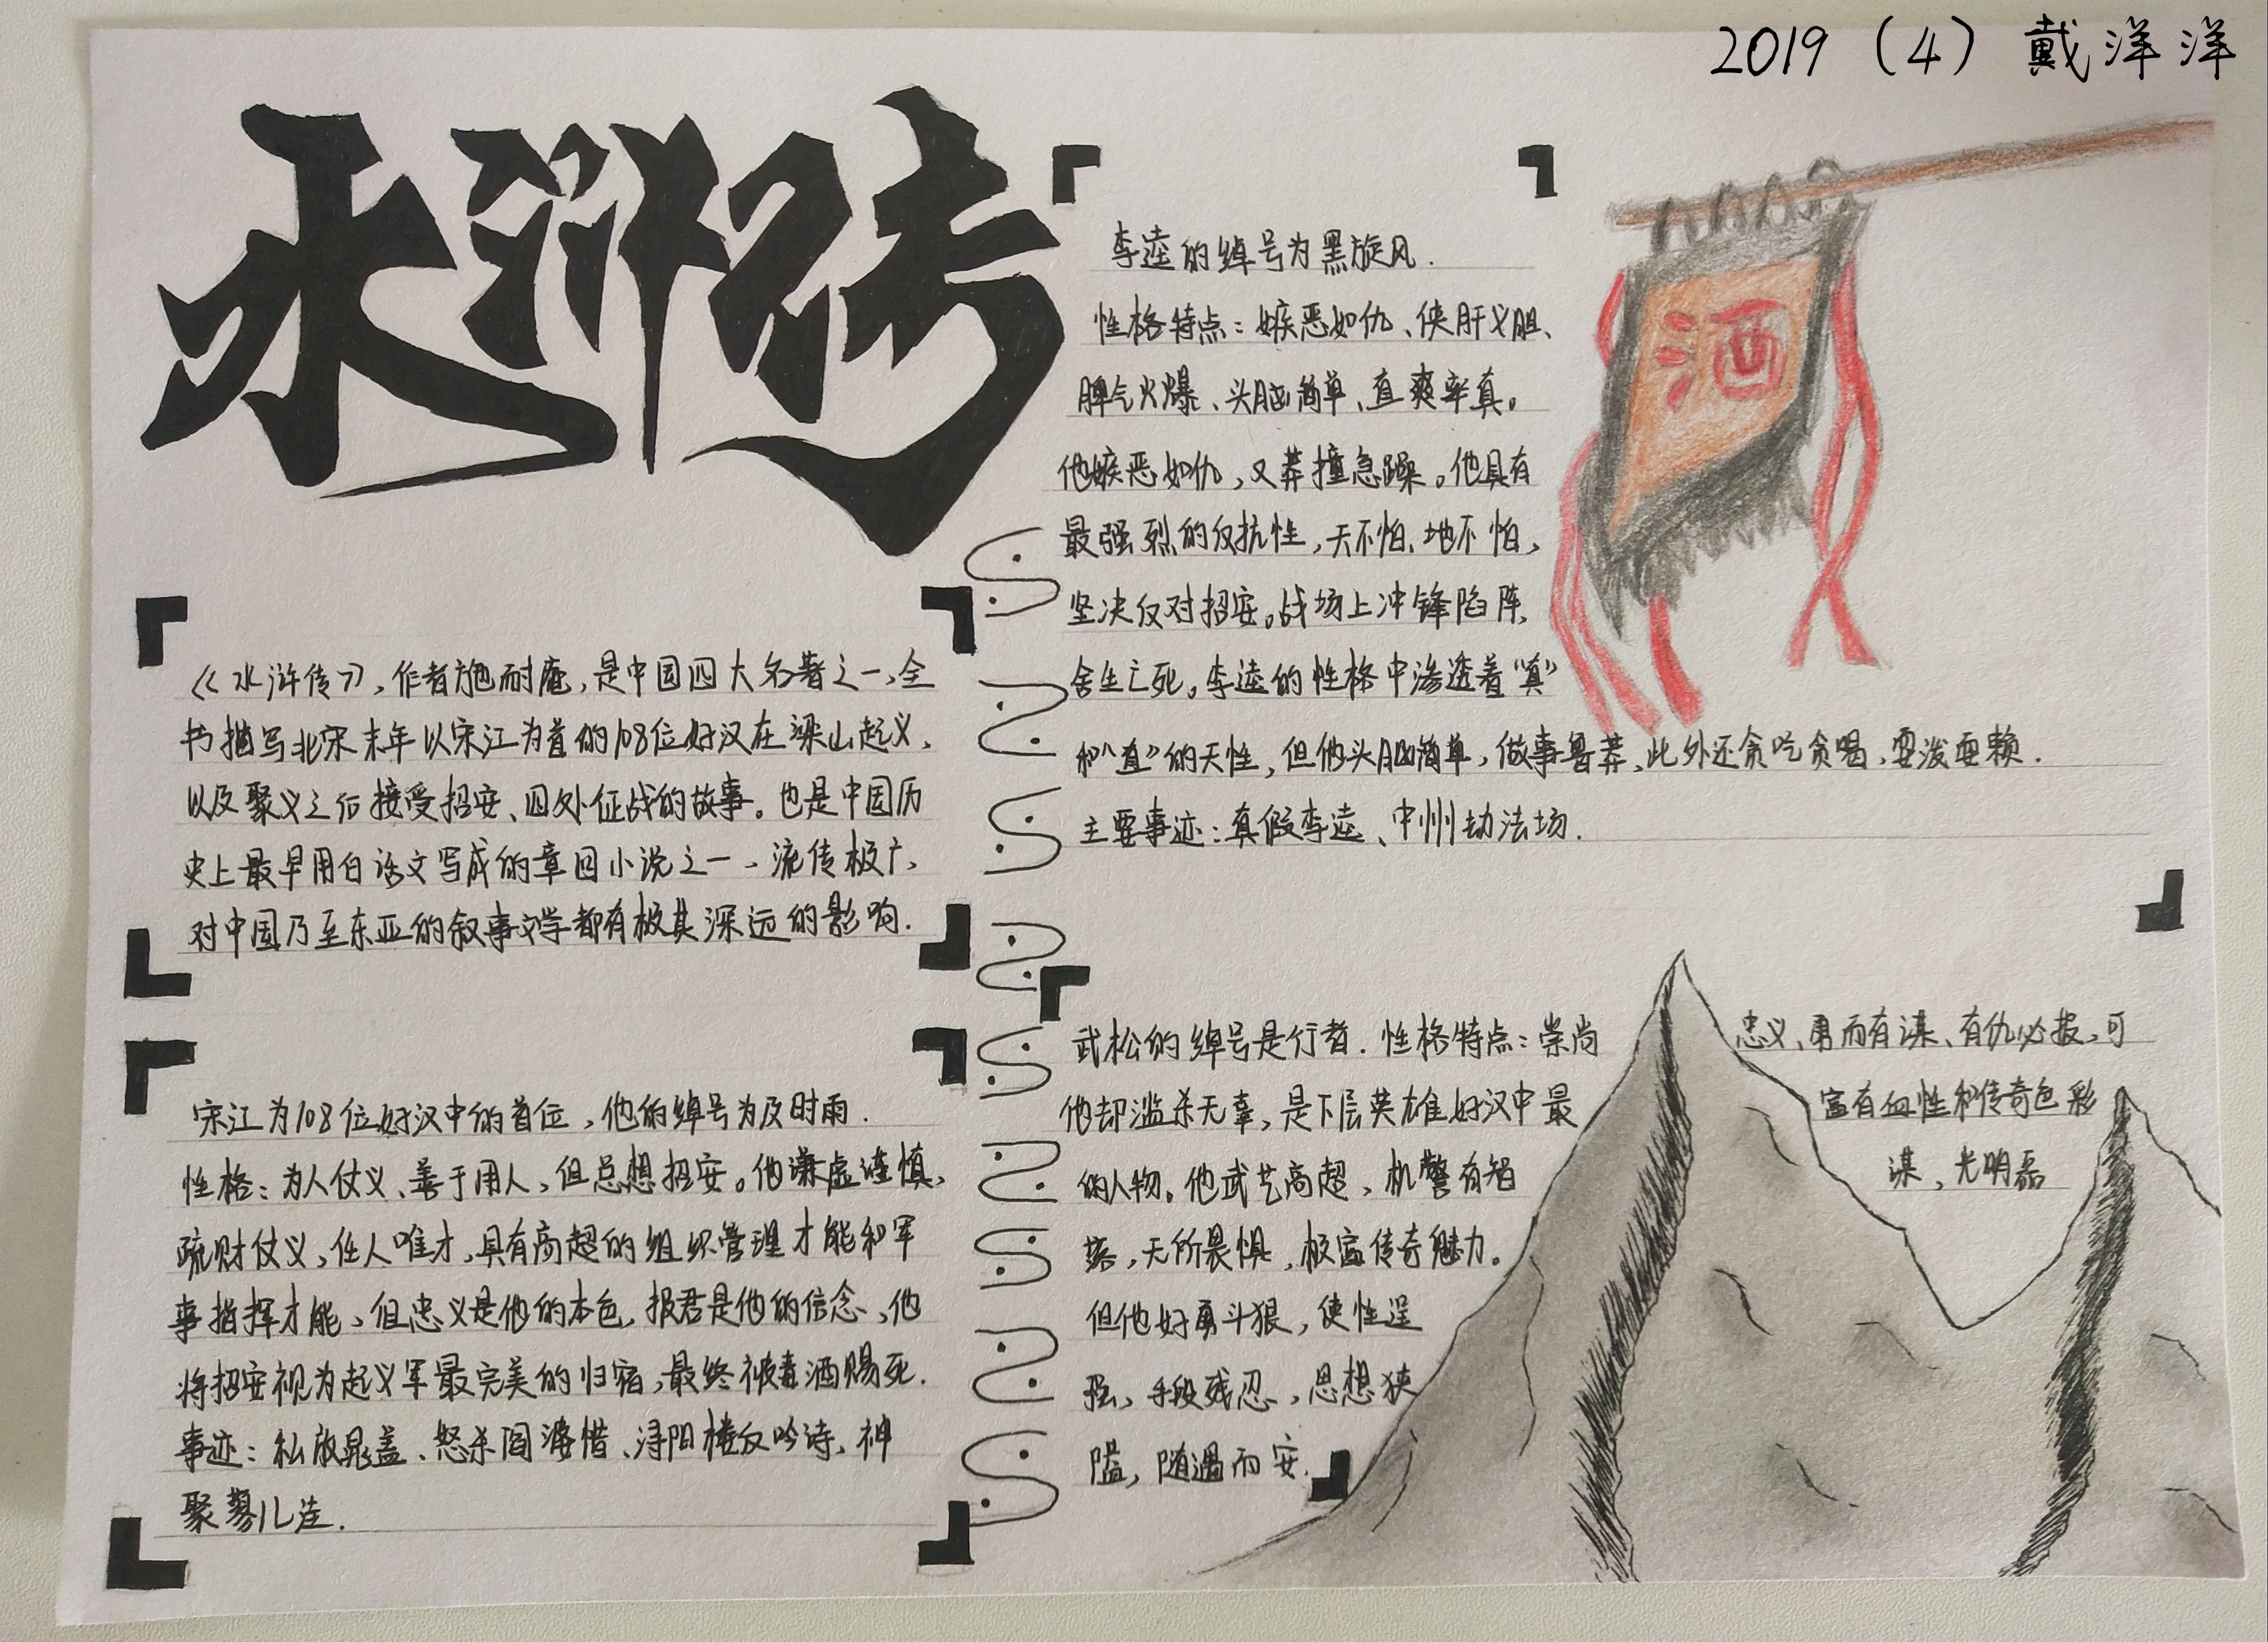 2019（4）戴洋洋
水浒传
《水浒传》，作者施耐庵，是中国四大名著之一，全
书描写北宋末年以宋江为首的108位好汉在梁山起义，
以及聚义之后接受招安、四处征战的故事。也是中国历
史上最早用白话文写成的章回小说之一、流传极广，
对中国乃至东亚的叙事文学都有极其深远的影响.
宋江为108位好汉中的首位，他的绰号为及时雨.
性格：为人仗义、善于用人，但总想招安。他谦虚谨慎，
疏财仗义，任人唯才，具有高超的组织管理才能和军
事指挥才能、但忠义是他的本色，报君是他的信念、他
将招安视为起义军最完美的归宿，最终被毒酒赐死.
事迹：私放晁盖、怒杀阎婆惜、浔阳楼反吟诗，神
聚蓼儿洼.
李逵的绰号为黑旋风.
性格特点：嫉恶如仇、侠肝义胆、
脾气火爆、头脑简单、直爽率真。
他嫉恶如仇，又莽撞急躁。他具有
最强烈的反抗性，天不怕、地不怕，
坚决反对招安。战场上冲锋陷阵，
舍生亡死。李逵的性格中渗透着“真”
和“直”的天性，但他头脑简单，做事鲁莽，此外还贪吃贪喝，耍泼耍赖.
主要事迹：真假李逵、中州劫法场.
酒
武松的绰号是行者. 性格特点：崇尚忠义、勇而有谋、有仇必报，可
他却滥杀无辜，是下层英雄好汉中最富有血性和传奇色彩
的人物。他武艺高超，机警有智谋，光明磊
落，无所畏惧，极富传奇魅力。
但他好勇斗狠，使性逞
强，手段残忍，思想狭
隘，随遇而安.